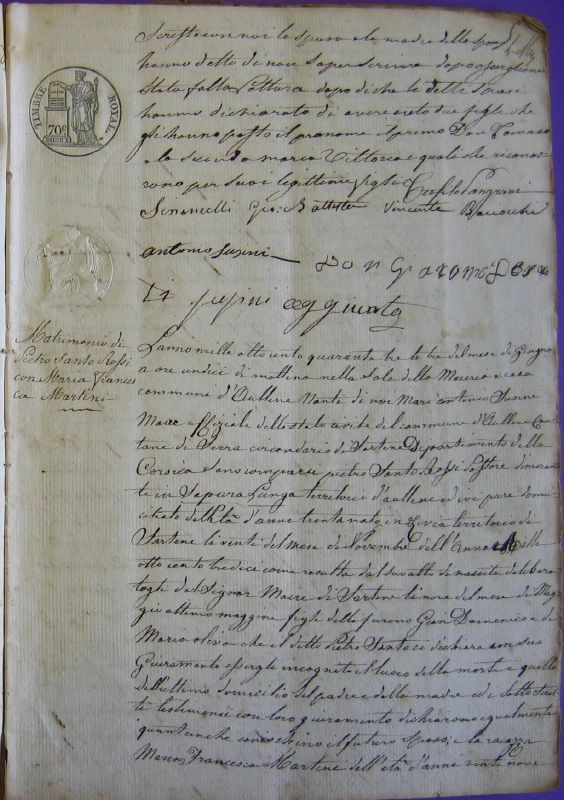 Scritto con noi lo sposo e la madre dello sposo
hanno detto di non saper scrivere dopo
stata fatta lettura dopo di che le detti sposi
hanno dichiarato di avere avuto due figli che
gli hanno posto il pronome il primo Don Tomaso
e la seconda Maria Vittoria e quali che ricono
rono per suoi legittimi figli
Simonelli Gio: Battista Vincente
antonio susini
Don
susini aggiunto
TIMBRE ROYAL
70c
Matrimonio di
Pietro Santo Rossi
con Maria Frances
ca Martini
L'anno mille otto cento quaranta tre li tre del mese di Giugno
a ore undici di mattina nella sala della Maeria e casa
commune d'Aullene Nanti di noi Marc'antonio Susini
Maere offiziale dello stato civile del commune d'Aullene Can
tone di Serra circondario di Sartene Departemento della
Corsica sono comparsi pietro Santo Rossi pastore dimoran
te in territorio d'aullene ed ivi pure domi
ciliato dell'età d'anni trentanato in Livia territorio di
Sartene li venti del mese di Novembre dell'Anno Mille
otto cento tredici come resulta dal suo atto di nascita
del Signor Maere di Sartene li nove del mese di Mag
gio ultimo maggiore figlio delli furono Gian Domenico e di
Maria oliva che il detto Pietro Santo ci dichiara con suo
Giuramento essergli incognito il luogo della morte e quello
dell'ultimo domicilio del padre e della madre ed i sotto scrit
ti testimoni con loro giuramento dichiarono egualmente
quantunche conoschino il futuro sposo, e la ragazza
Maria Francesca Martini dell'età d'anni venti nove